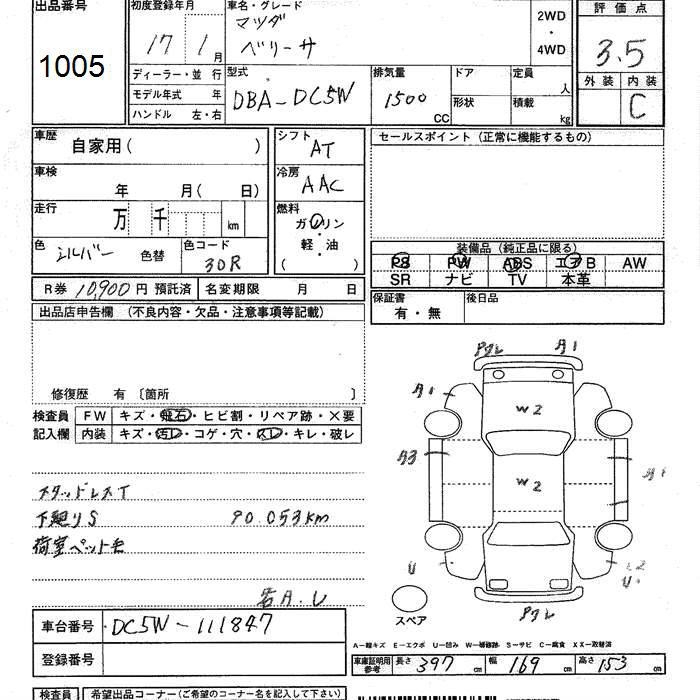 出品番号
1005
初度登録年月
17 1月
車名・グレード
マツダ
ベリーサ
2WD
・
4WD
評価点
3.5
外装 内装
C
ディーラー・並 行
モデル年式 年
ハンドル 左・右
型式
DBA-DC5W
排気量
1500
CC
ドア
形状
定員
人
積載
kg
車歴
自家用( )
車検
年 月( 日)
走行
万 千 km
色
シルバー 色替
色コード
30R
シフト
AT
冷房
AAC
燃料
ガソリン
軽・油
( )
セールスポイント(正常に機能するもの)
装備品(純正品に限る)
PS PW ABS エアB AW
SR ナビ TV 本革
R券 10,900円 預託済 名変期限 月 日
保証書
有・無
後日品
出品店申告欄 (不良内容・欠品・注意事項等記載)
修復歴 有〔箇所 〕
検査員 FW キズ・飛石・ヒビ割・リペア跡・×要
記入欄 内装 キズ・汚レ・コゲ・穴・スレ・キレ・破レ
スタッドレスT
下廻りS 90.053km
荷室ペット毛
各A.U
A1
A1
W2
A3
W2
U
スペア
車台番号 DC5W-111847
登録番号
A-線キズ E-エクボ U-凹み W-補修跡 S-サビ C-腐食 XX-取替済
車庫証明用
参考
長さ 397 cm 幅 169 cm 高さ 153 cm
検査員 希望出品コーナー(ご希望のコーナー名を記入して下さい)